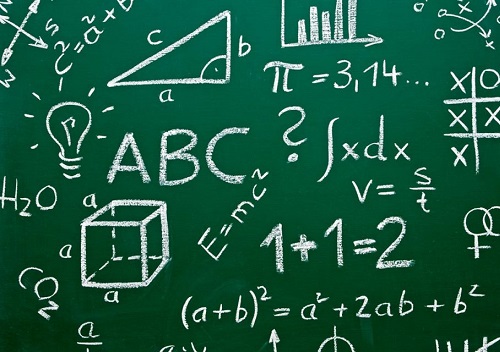 c² = a² + b
c
b
a
π = 3,14...
X O
X X
X
?
ABC
∫xdx
v = s/t
H₂O
a
a
a
E=mc²
1+1=2
CO₂
(a+b)² = a² + 2ab + b²
a